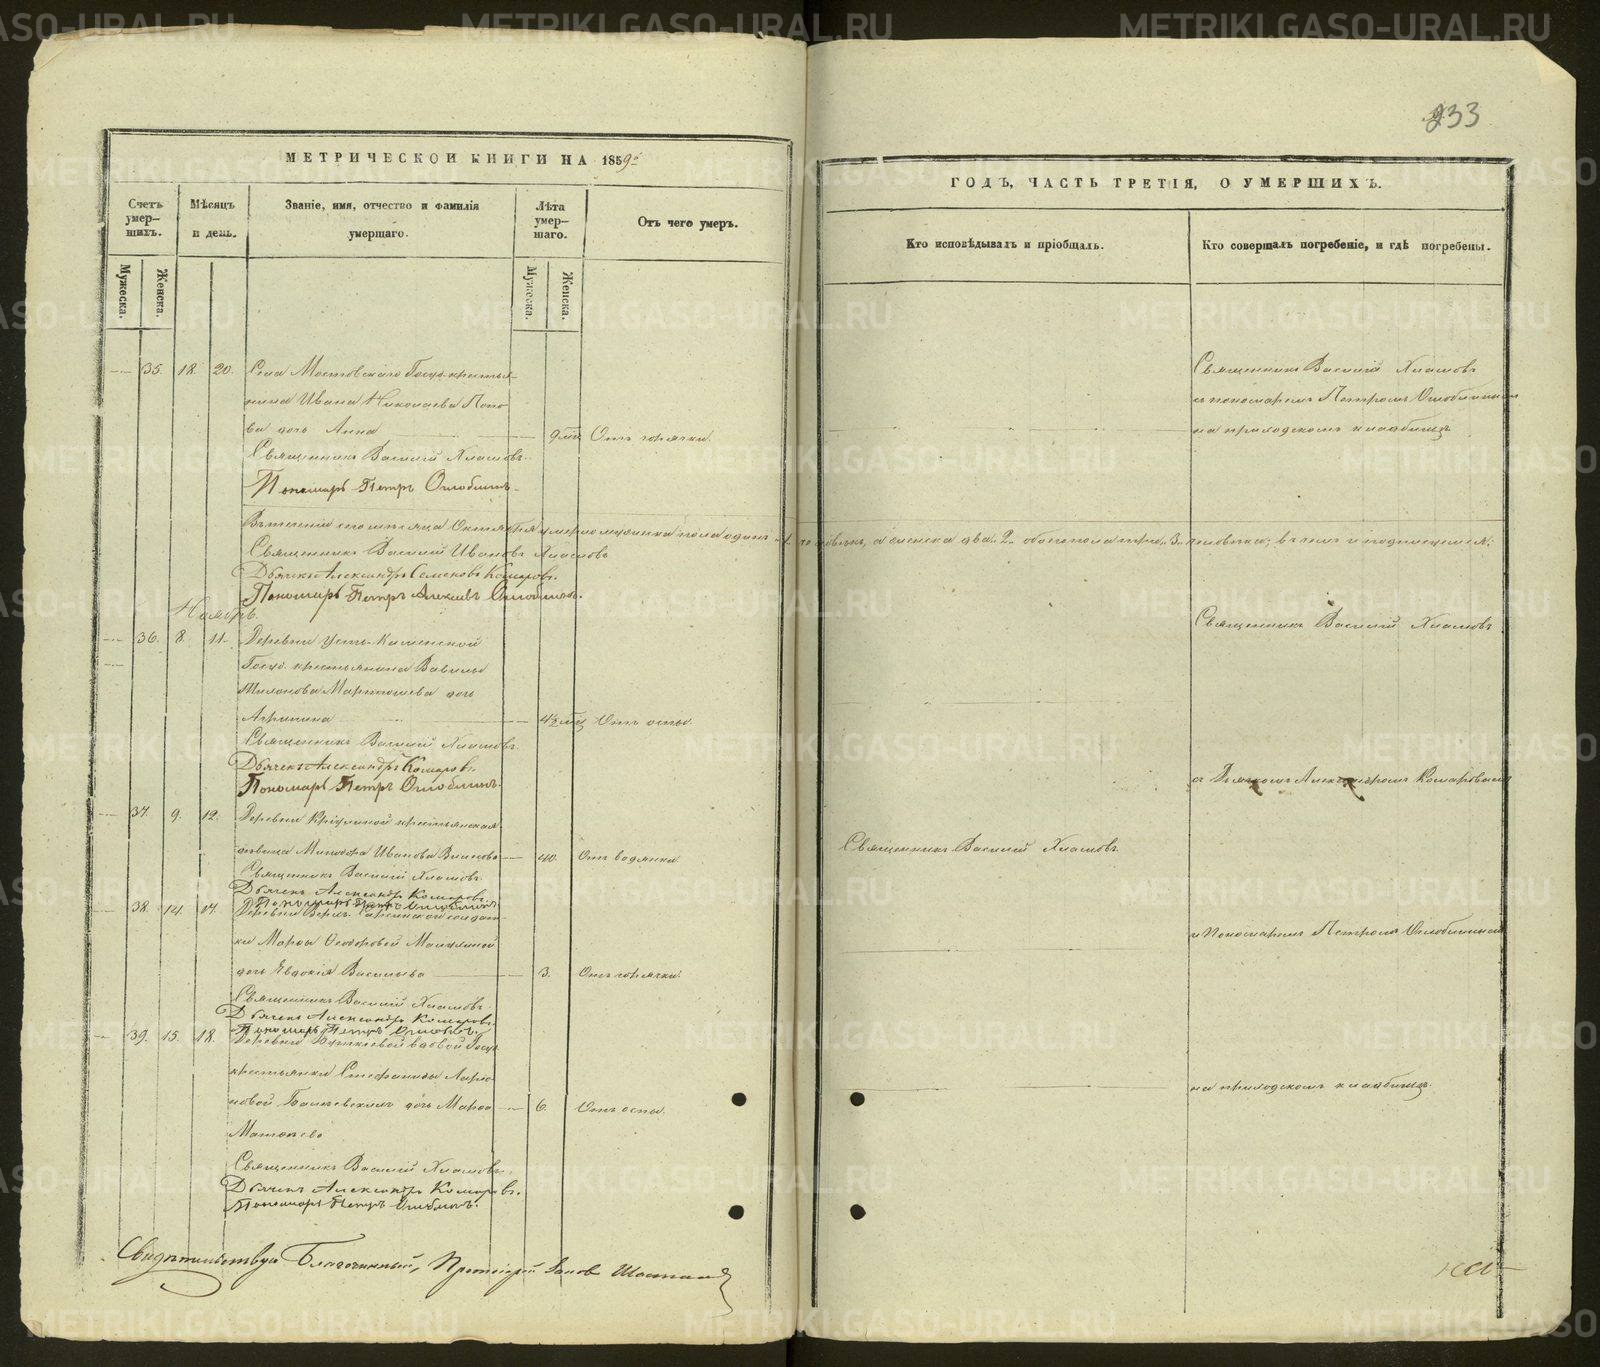 233
МЕТРИЧЕСКОЙ КНИГИ НА 1859й
Счетъ умер-шихъ.
Мѣсяцъ и день.
Званіе, имя, отчество и фамилія умершаго.
Лѣта умер-шаго.
Отъ чего умеръ.
Мужеска.
Женска.
Мужеска.
Женска.
35. 18. 20. Села Мостовскаго Госуд. крестья-
нина Ивана Николаева Попо
ва дочь Анна 9 мц. Отъ горячки.
Священникъ Василій Хламовъ.
Пономарь Петръ Оглоблинъ.
Въ теченіи сего мѣсяца Октября умерло мужеска пола одинъ 1. человѣкъ, а женска два 2. обоего пола три 3. человѣка; въ чемъ и подписуемся:
Священникъ Василій Ивановъ Хламовъ
Дьячекъ Александръ Семеновъ Комаровъ.
Пономарь Петръ Алексѣевъ Оглоблинъ.
Ноябрь.
36. 8. 11. Деревни Усть-Каменской
Госуд. крестьянина Вавилы
дочь
Агрипина 4½ мц Отъ оспы.
Священникъ Василій Хламовъ.
Дьячекъ Александръ Комаровъ.
Пономарь Петръ Оглоблинъ.
37. 9. 12. Деревни крестьянская
дѣвица Ивановна 40. Отъ водянки.
Священникъ Василій Хламовъ.
Дьячекъ Александръ Комаровъ.
Пономарь Петръ Оглоблинъ.
38. 14. 17. Деревни Верх. солдат-
ки Марфы Ѳеодоровой
дочь Евдокія Васильева 3. Отъ горячки.
Священникъ Василій Хламовъ.
Дьячекъ Александръ Комаровъ.
Пономарь Петръ Оглоблинъ.
39. 15. 18. Деревни вдовой Госуд.
крестьянки Стефаниды Ларіо
новой дочь Марфа 6. Отъ оспы.
Священникъ Василій Хламовъ.
Дьячекъ Александръ Комаровъ.
Пономарь Петръ Оглоблинъ.
Свидѣтельствую Благочинный, Протоіерей
ГОДЪ, ЧАСТЬ ТРЕТІЯ, О УМЕРШИХЪ.
Кто исповѣдывалъ и пріобщалъ.
Кто совершалъ погребеніе, и гдѣ погребены.
Священникъ Василій Хламовъ
съ пономаремъ Петромъ Оглоблинымъ
на приходскомъ кладбищѣ
Священникъ Василій Хламовъ
съ Дьячкомъ Александромъ Комаровымъ
Священникъ Василій Хламовъ.
и Пономаремъ Петромъ Оглоблинымъ
на приходскомъ кладбищѣ.
METRIKI.GASO-URAL.RU